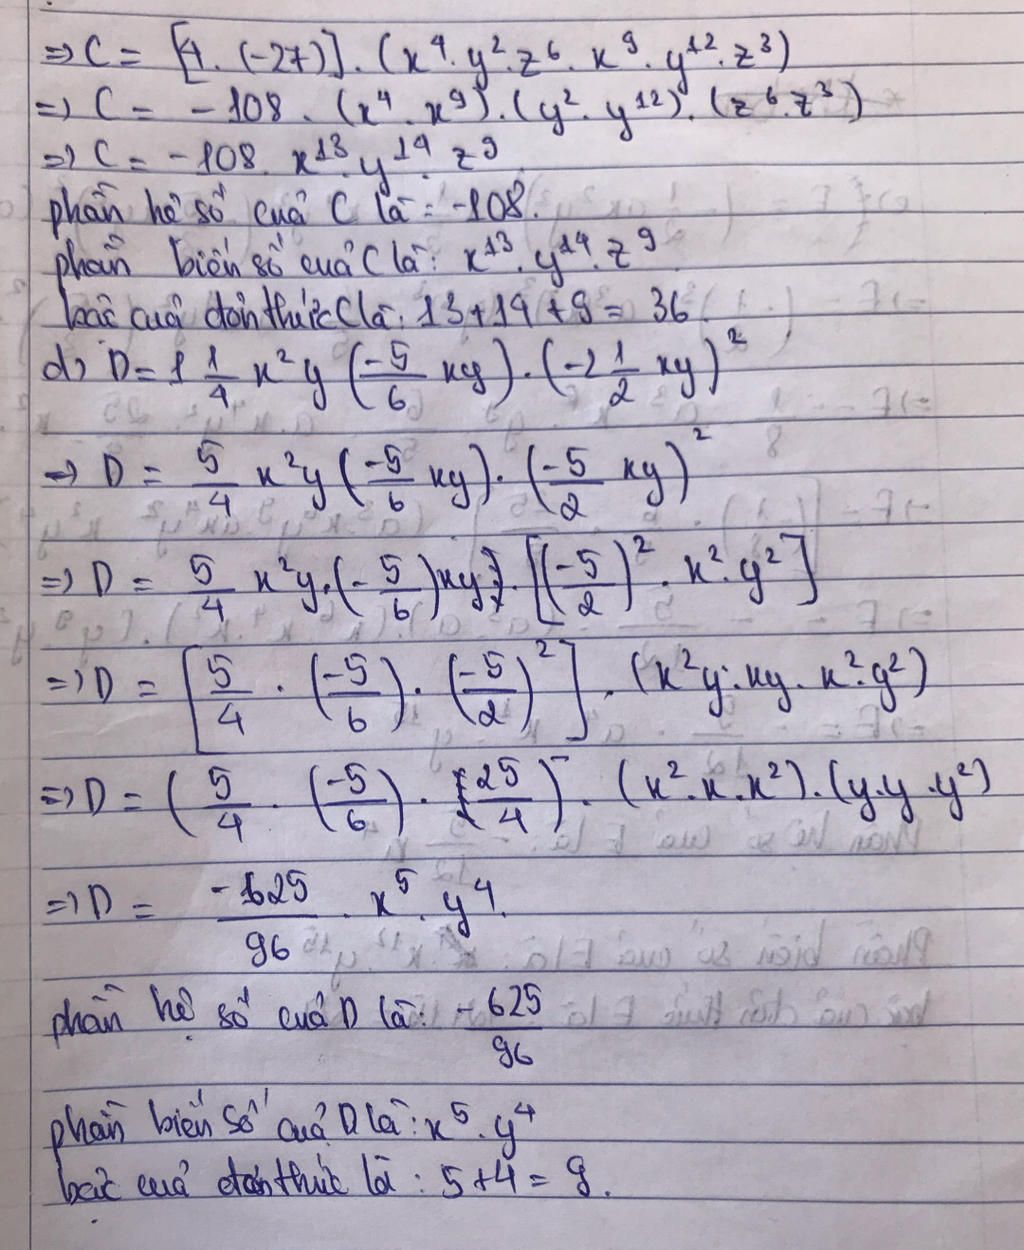 => C = [4. (-27)]. (x⁴. y². z⁶. x⁹. y¹². z³)
=> C = -108. (x⁴. x⁹). (y². y¹²). (z⁶. z³)
=> C = -108. x¹³. y¹⁴. z⁹
phần hệ số cuả C là = -108.
phần biến số cuả C là: x¹³. y¹⁴. z⁹
bậc cuả đơn thức C là: 13+14+9 = 36
d) D = 1 1/4 x²y (-5/6 xy). (-2 1/2 xy)²
=> D = 5/4 x²y (-5/6 xy). (-5/2 xy)²
=> D = 5/4 x²y. (-5/6) xy]. [(-5/2)². x². y²]
=> D = [5/4. (-5/6). (-5/2)²]. (x²y. xy. x². y²)
=> D = (5/4. (-5/6). 25/4). (x². x. x²). (y. y. y²)
=> D = -625/96. x⁵. y⁴.
phần hệ số cuả D là: -625/96
phần biến số cuả D là: x⁵. y⁴
bậc cuả đơn thức là: 5+4 = 9.